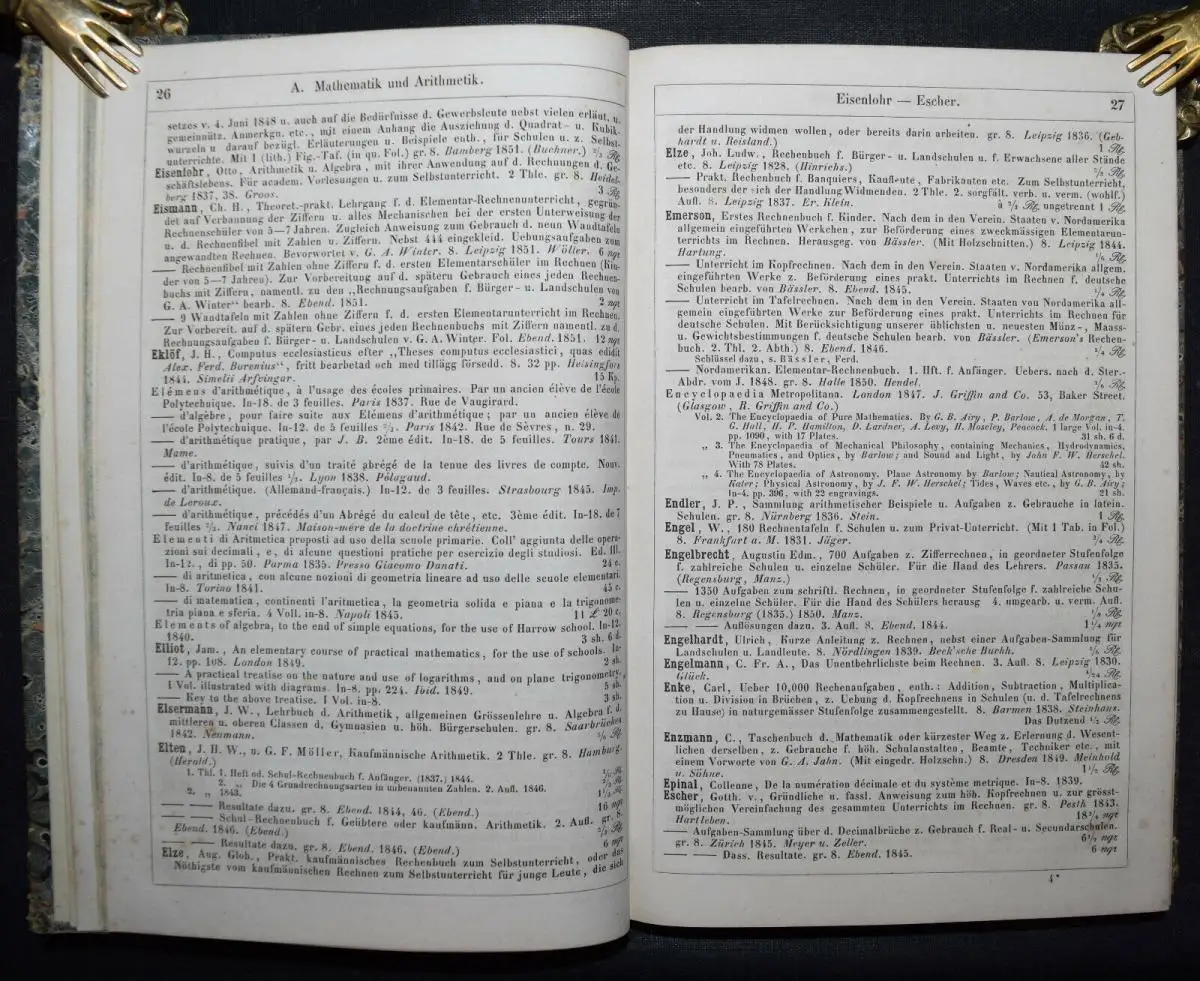 26
A. Mathematik und Arithmetik.
setzes v. 4. Juni 1848 u. auch auf die Bedürfnisse d. Gewerbsleute nebst vielen erläut. u.
gemeinnütz. Anmerkgn. etc., mit einem Anhang die Ausziehung d. Quadrat- u. Kubik-
wurzeln u. darauf bezügl. Erläuterungen u. Beispiele enth., für Schulen u. z. Selbst-
unterrichte. Mit 1 (lith.) Fig.-Taf. (in qu. Fol.) gr. 8. Bamberg 1851. (Buchner.) ²/₃ Rg
Eisenlohr, Otto, Arithmetik u. Algebra, mit ihrer Anwendung auf d. Rechnungen d. Ge-
schäftslebens. Für academ. Vorlesungen u. zum Selbstunterricht. 2 Thle. gr. 8. Heidel-
berg 1837, 38. Groos. 3 Rg
Eismann, Ch. H., Theoret.-prakt. Lehrgang f. d. Elementar-Rechnenunterricht, gegrün-
det auf Verbannung der Ziffern u. alles Mechanischen bei der ersten Unterweisung der
Rechnenschüler von 5—7 Jahren. Zugleich Anweisung zum Gebrauch d. neun Wandtafeln
u. d. Rechnenfibel mit Zahlen u. Ziffern. Nebst 444 eingekleid. Uebungsaufgaben zum
angewandten Rechnen. Bevorwortet v. G. A. Winter. 8. Leipzig 1851. Wöller. 6 ngr
—— Rechnenfibel mit Zahlen ohne Ziffern f. d. ersten Elementarschüler im Rechnen (Kin-
der von 5—7 Jahren). Zur Vorbereitung auf d. spätern Gebrauch eines jeden Rechnen-
buchs mit Ziffern, namentl. zu den „Rechnungsaufgaben f. Bürger- u. Landschulen von
G. A. Winter“ bearb. 8. Ebend. 1851. 2 ngr
—— 9 Wandtafeln mit Zahlen ohne Ziffern f. d. ersten Elementarunterricht im Rechnen.
Zur Vorbereit. auf d. spätern Gebr. eines jeden Rechnenbuchs mit Ziffern namentl. zu d.
Rechnungsaufgaben f. Bürger- u. Landschulen v. G. A. Winter. Fol. Ebend. 1851. 12 ngr
Eklöf, J. H., Computus ecclesiasticus efter „Theses computus ecclesiastici, quas edidit
Alex. Ferd. Borenius“, fritt bearbetad och med tillägg försedd. 8. 32 pp. Helsingfors
1844. Simelii Arfvingar. 15 Kp.
Elémens d'arithmétique, à l'usage des écoles primaires. Par un ancien élève de l'école
Polytechnique. In-18. de 3 feuilles. Paris 1837. Rue de Vaugirard.
—— d'algèbre, pour faire suite aux Elémens d'arithmétique; par un ancien élève de
l'école Polytechnique. In-12. de 5 feuilles ²/₃. Paris 1842. Rue de Sèvres, n. 29.
—— d'arithmétique pratique, par J. B. 2ème édit. In-18. de 5 feuilles. Tours 1841.
Mame.
—— d'arithmétique, suivis d'un traité abrégé de la tenue des livres de compte. Nouv.
édit. In-8. de 5 feuilles ¹/₂. Lyon 1838. Pélagaud.
—— d'arithmétique. (Allemand-français.) In-12. de 3 feuilles. Strasbourg 1845. Imp.
de Leroux.
—— d'arithmétique, précédés d'un Abrégé du calcul de tête, etc. 3ème édit. In-18. de 7
feuilles ²/₃. Nanci 1847. Maison-mère de la doctrine chrétienne.
Elementi di Aritmetica proposti ad uso della scuole primarie. Coll' aggiunta delle opera-
zioni sui decimali, e, di alcune questioni pratiche per esercizio degli studiosi. Ed. III.
In-12., di pp. 50. Parma 1835. Presso Giacomo Donati. 24 c.
—— di aritmetica, con alcune nozioni di geometria lineare ad uso delle scuole elementari.
In-8. Torino 1841. 45 c.
—— di matematica, continenti l'aritmetica, la geometria solida e piana e la trigonome-
tria piana e sferia. 4 Voll. in-8. Napoli 1845. 11 £ 20 c.
Elements of algebra, to the end of simple equations, for the use of Harrow school. In-12.
1840. 3 sh. 6 d.
Elliot, Jam., An elementary course of practical mathematics, for the use of schools. In-
12. pp. 108. London 1849. 2 sh.
—— A practical treatise on the nature and use of logarithms, and on plane trigonometry.
1 Vol. illustrated with diagrams. In-8. pp. 224. Ibid. 1849. 5 sh.
—— Key to the above treatise. 1 Vol. in-8. 3 sh.
Elsermann, J. W., Lehrbuch d. Arithmetik, allgemeinen Grössenlehre u. Algebra f. d.
mittleren u. oberen Classen d. Gymnasien u. höh. Bürgerschulen. gr. 8. Saarbrücken
1842. Neumann.
Elten, J. H. W., u. G. F. Möller, Kaufmännische Arithmetik. 2 Thle. gr. 8. Hamburg.
(Herold.)
1. Thl. 1. Heft od. Schul-Rechnenbuch f. Anfänger. (1837.) 1844.
2. „ Die 4 Grundrechnungsarten in unbenannten Zahlen. 2. Aufl. 1846.
2. „ 1843.
—— —— Resultate dazu. gr. 8. Ebend. 1844, 46. (Ebend.) 16 ngr
—— —— Schul-Rechnenbuch f. Geübtere oder kaufmänn. Arithmetik. 2. Aufl. gr. 8.
Ebend. 1846. (Ebend.)
—— —— Resultate dazu. gr. 8. Ebend. 1846. (Ebend.) 6 ngr
Elze, Aug. Glob., Prakt. kaufmännisches Rechenbuch zum Selbstunterricht, oder das
Nöthigste vom kaufmännischen Rechnen zum Selbstunterricht für junge Leute, die sich
Eisenlohr — Escher.
27
der Handlung widmen wollen, oder bereits darin arbeiten. gr. 8. Leipzig 1836. (Geb-
hardt u. Reisland.) 1 Rg
Elze, Joh. Ludw., Rechenbuch f. Bürger- u. Landschulen u. f. Erwachsene aller Stände
etc. 8. Leipzig 1828. (Hinrichs.)
—— Prakt. Rechenbuch f. Banquiers, Kaufleute, Fabrikanten etc. Zum Selbstunterricht,
besonders der sich der Handlung Widmenden. 2 Thle. 2. sorgfält. verb. u. verm. (wohlf.)
Aufl. 8. Leipzig 1837. Er. Klein. à ²/₃ Rg, ungetrennt 1 Rg
Emerson, Erstes Rechenbuch f. Kinder. Nach dem in den Verein. Staaten v. Nordamerika
allgemein eingeführten Werkchen, zur Beförderung eines zweckmässigen Elementarun-
terrichts im Rechnen. Herausgeg. von Bässler. (Mit Holzschnitten.) 8. Leipzig 1844.
Hartung.
—— Unterricht im Kopfrechnen. Nach dem in den Verein. Staaten v. Nordamerika allgem.
eingeführten Werke z. Beförderung eines prakt. Unterrichts im Rechnen f. deutsche
Schulen bearb. von Bässler. 8. Ebend. 1845.
—— Unterricht im Tafelrechnen. Nach dem in den Verein. Staaten von Nordamerika all-
gemein eingeführten Werke zur Beförderung eines prakt. Unterrichts im Rechnen für
deutsche Schulen. Mit Berücksichtigung unserer üblichsten u. neuesten Münz-, Maass-
u. Gewichtsbestimmungen f. deutsche Schulen bearb. von Bässler. (Emerson's Rechen-
buch. 2. Thl. 2. Abth.) 8. Ebend. 1846.
Schlüssel dazu, s. Bässler, Ferd.
—— Nordamerikan. Elementar-Rechnenbuch. 1. Hft. f. Anfänger. Uebers. nach d. Ster.-
Abdr. vom J. 1848. gr. 8. Halle 1850. Hendel.
Encyclopaedia Metropolitana. London 1847. J. Griffin and Co. 53, Baker Street.
(Glasgow, R. Griffin and Co.)
Vol. 2. The Encyclopaedia of Pure Mathematics. By G. B. Airy, P. Barlow, A. de Morgan, T.
G. Hall, H. P. Hamilton, D. Lardner, A. Levy, H. Moseley, Peacock. 1 large Vol. in-4.
pp. 1090, with 17 Plates. 31 sh. 6 d.
„ 3. The Encyclopaedia of Mechanical Philosophy, containing Mechanics, Hydrodynamics,
Pneumatics, and Optics, by Barlow; and Sound and Light, by John F. W. Herschel.
With 78 Plates. 42 sh.
„ 4. The Encyclopaedia of Astronomy. Plane Astronomy by Barlow; Nautical Astronomy, by
Kater; Physical Astronomy, by J. F. W. Herschel; Tides, Waves etc., by G. B. Airy;
In-4. pp. 396, with 22 engravings. 21 sh.
Endler, J. P., Sammlung arithmetischer Beispiele u. Aufgaben z. Gebrauche in latein.
Schulen. gr. 8. Nürnberg 1836. Stein. 1 Rg
Engel, W., 180 Rechentafeln f. Schulen u. zum Privat-Unterricht. (Mit 1 Tab. in Fol.)
8. Frankfurt a. M. 1831. Jäger.
Engelbrecht, Augustin Edm., 700 Aufgaben z. Zifferrechnen, in geordneter Stufenfolge
f. zahlreiche Schulen u. einzelne Schüler. Für die Hand des Lehrers. Passau 1835.
(Regensburg, Manz.)
—— 1350 Aufgaben zum schriftl. Rechnen, in geordneter Stufenfolge f. zahlreiche Schu-
len u. einzelne Schüler. Für die Hand des Schülers herausg 4. umgearb. u. verm. Aufl.
8. Regensburg (1835.) 1850. Manz.
—— —— Auflösungen dazu. 3. Aufl. 8. Ebend. 1844. 1¹/₄ ngr
Engelhardt, Ulrich, Kurze Anleitung z. Rechnen, nebst einer Aufgaben-Sammlung für
Landschulen u. Landleute. 8. Nördlingen 1839. Beck'sche Buchh.
Engelmann, C. Fr. A., Das Unentbehrlichste beim Rechnen. 3. Aufl. 8. Leipzig 1830.
Glück.
Enke, Carl, Ueber 10,000 Rechenaufgaben, enth.: Addition, Subtraction, Multiplica-
tion u. Division in Brüchen, z. Uebung d. Kopfrechnens in Schulen (u. d. Tafelrechnens
zu Hause) in naturgemässer Stufenfolge zusammengestellt. 8. Barmen 1838. Steinhaus.
Das Dutzend ¹/₂ Rg
Enzmann, C., Taschenbuch d. Mathematik oder kürzester Weg z. Erlernung d. Wesent-
lichen derselben, z. Gebrauche f. höh. Schulanstalten, Beamte, Techniker etc., mit
einem Vorworte von G. A. Jahn. (Mit eingedr. Holzschn.) 8. Dresden 1849. Meinhold
u. Söhne. 1¹/₂ Rg
Epinal, Collenne, De la numération décimale et du système metrique. In-8. 1839.
Escher, Gotth. v., Gründliche u. fassl. Anweisung zum höh. Kopfrechnen u. zur grösst-
möglichen Vereinfachung des gesammten Unterrichts im Rechnen. gr. 8. Pesth 1843.
Hartleben. 18³/₄ ngr
—— Aufgaben-Sammlung über d. Decimalbrüche z. Gebrauch f. Real- u. Secundarschulen.
gr. 8. Zürich 1845. Meyer u. Zeller. 6³/₄ ngr
—— —— Dass. Resultate. gr. 8. Ebend. 1845. 6 ngr
4*